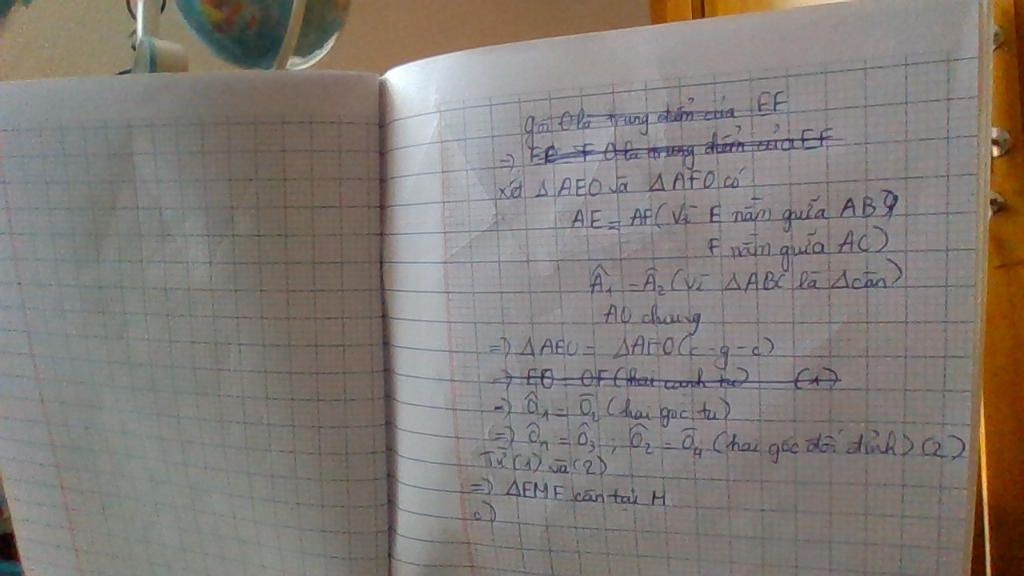 gọi O là trung điểm của EF
=> EO = F O là trung điểm của EF
xét Δ AEO và Δ AFO có
AE = AF (vì E nằm giữa AB,
F nằm giữa AC)
Â₁ = Â₂ (vì ΔABC là Δ cân)
AO chung
=> ΔAEO = ΔAFO (c-g-c)
=> EO = OF (hai cạnh tư) (1)
=> Ô₁ = Ô₂ (hai góc tư)
=> Ô₁ = Ô₃ ; Ô₂ = Ô₄ (hai góc đối đỉnh) (2)
Từ (1) và (2)
=> ΔEMF cân tại M
c)